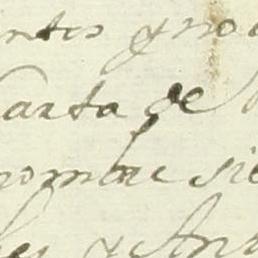 ntes y no
Carta de
nombre sie
les y Ant